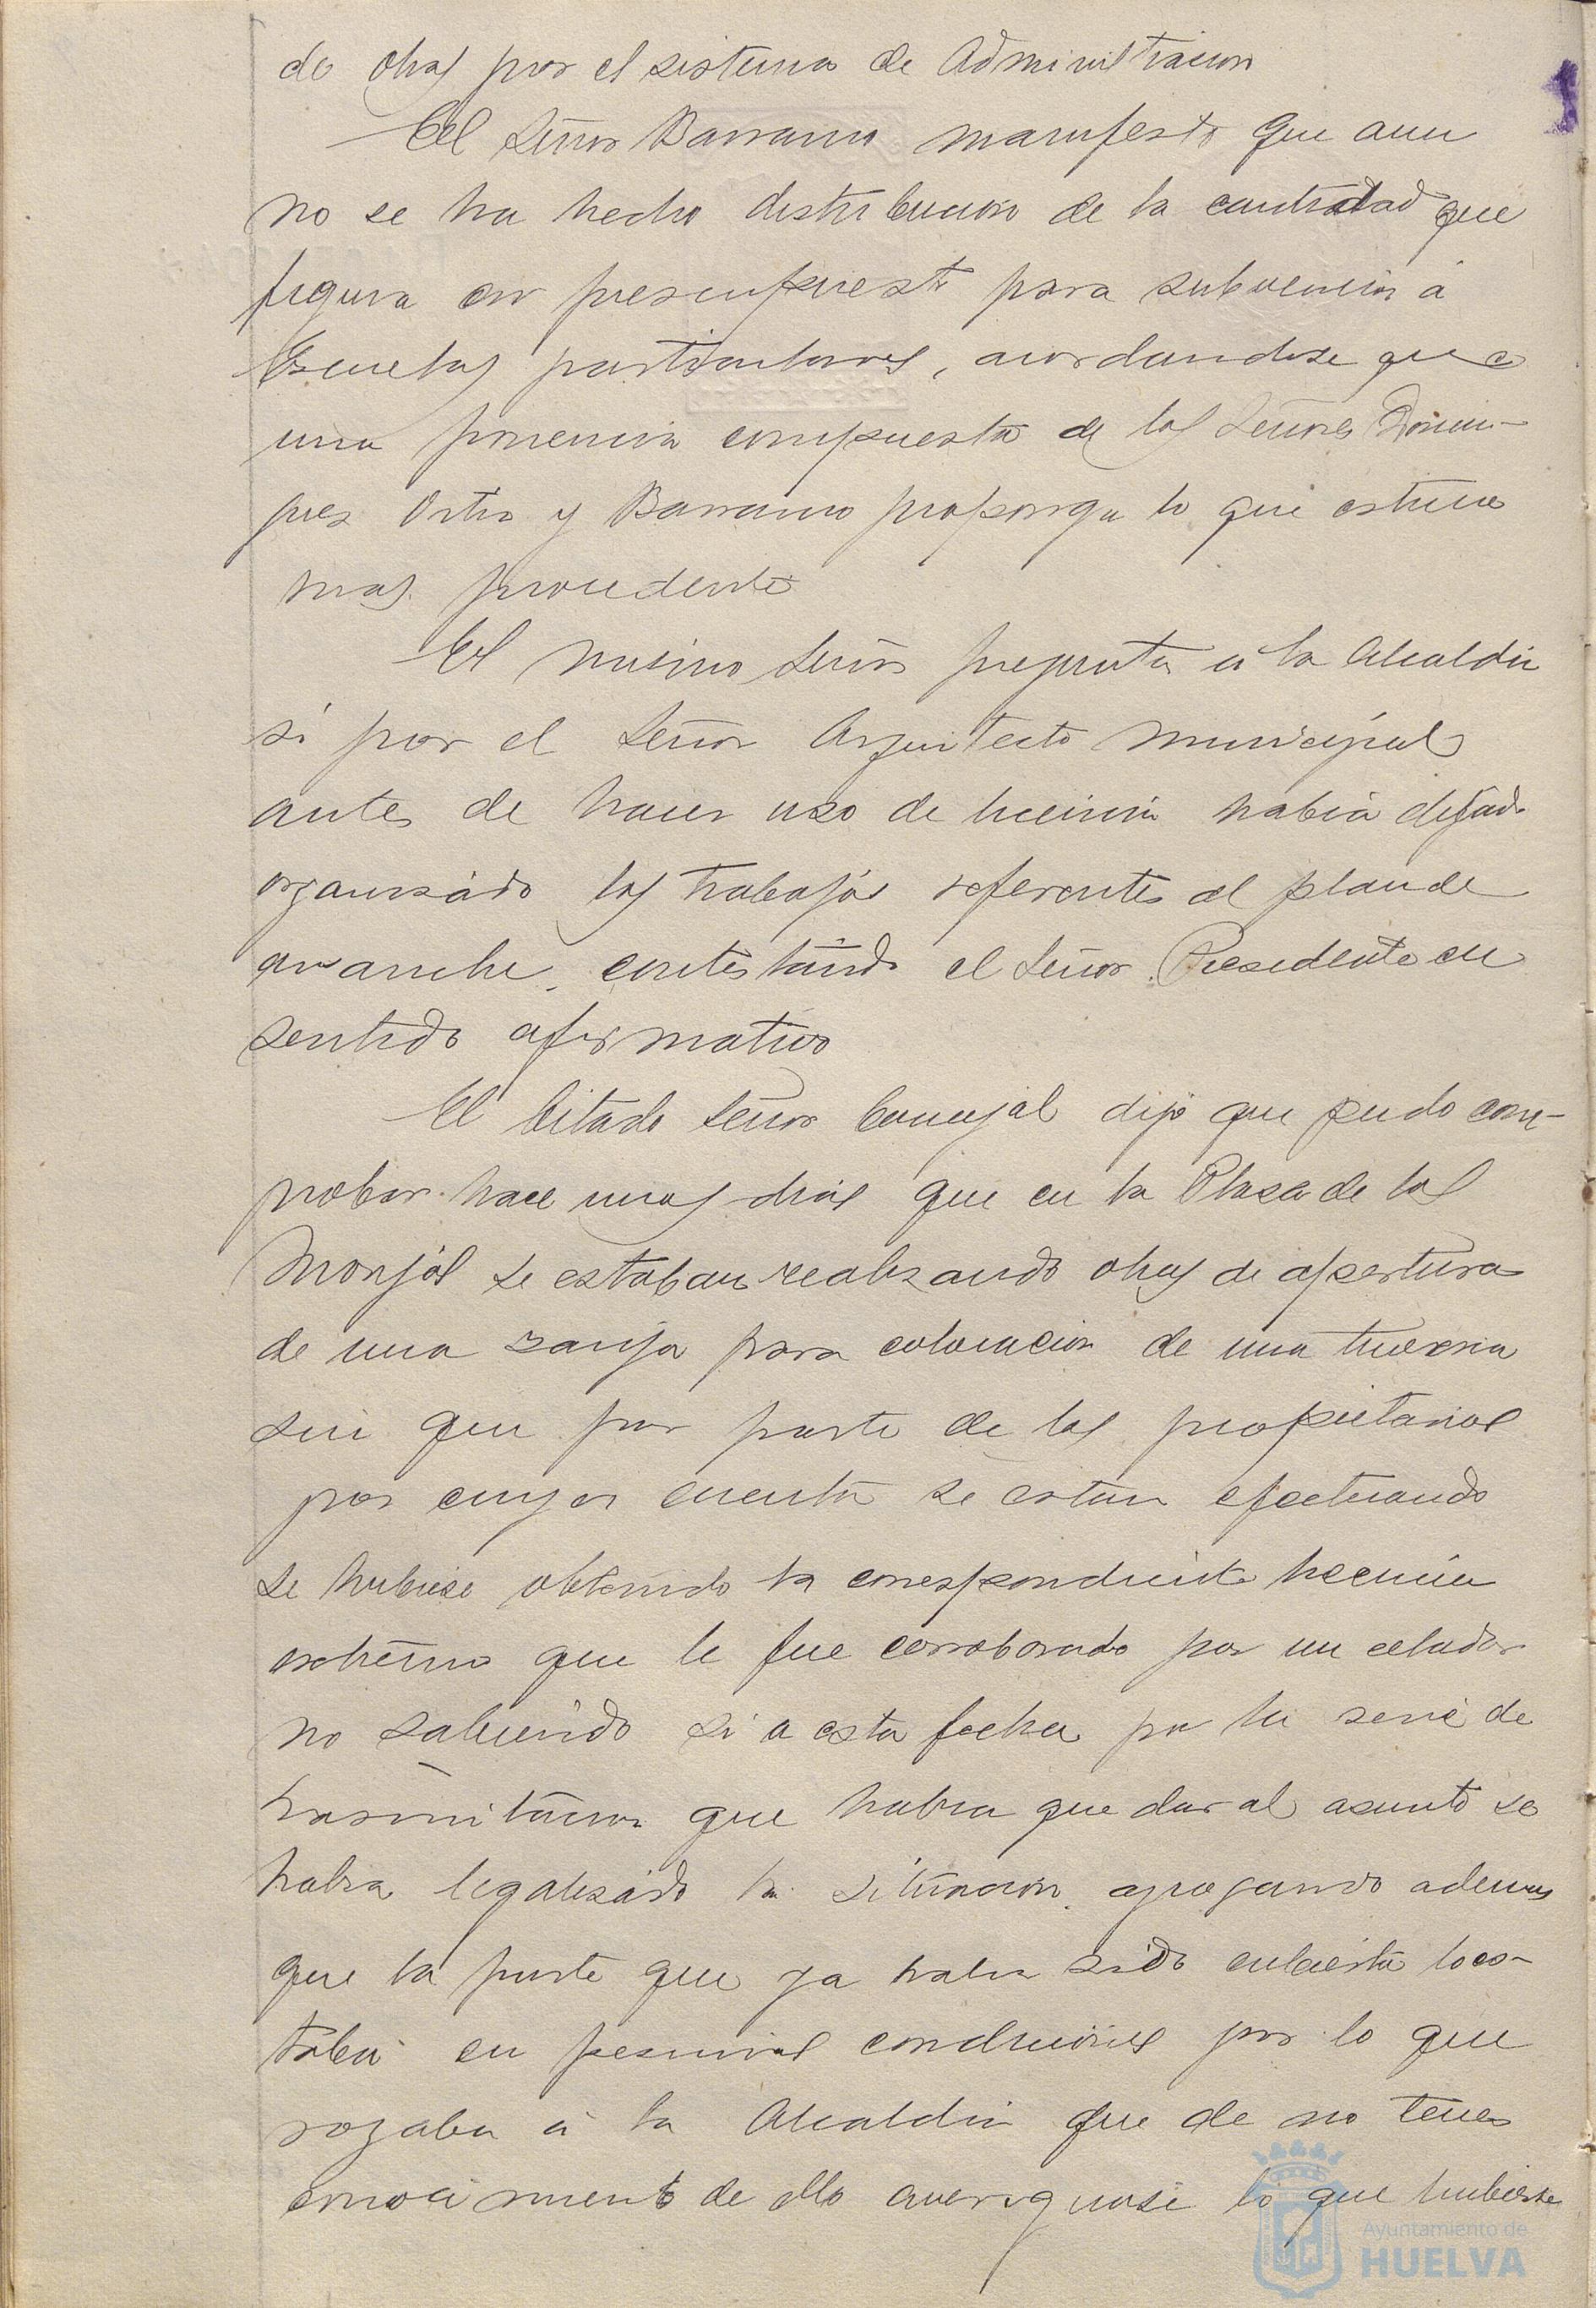 de obras por el sistema de Administracion
El Señor Barranco manifesto que aun
no se ha hecho distribucion de la cantidad que
figura en presupuesto para subvencion á
Escuelas particulares, acordandose que
una ponencia compuesta de los Señores Domin-
guez Ortiz y Barranco proponga lo que estime
mas procedente
El mismo Señor pregunta á la Alcaldia
si por el Señor Arquitecto municipal
antes de hacer uso de licencia habia dejado
organizado los trabajos referentes al plan de
ensanche, contestando el Señor Presidente en
sentido afirmativo
El Citado Señor Concejal dijo que pudo com-
probar hace unos dias que en la Plaza de las
Monjas se estaban realizando obras de apertura
de una zanja para colocacion de una tuberia
sin que por parte de los propietarios
por cuya cuenta se estan efectuando
se hubiese obtenido la correspondiente licencia
extremo que le fue corroborado por un celador
no sabiendo si a esta fecha por la serie de
tramitacion que habia que dar al asunto se
habra legalizado la situacion, agregando ademas
que la parte que ya habia sido cubierta lo es-
taba en pesimas condiciones por lo que
rogaba á la Alcaldia que de no tener
conocimiento de ello averiguase lo que hubiese
Ayuntamiento de
HUELVA